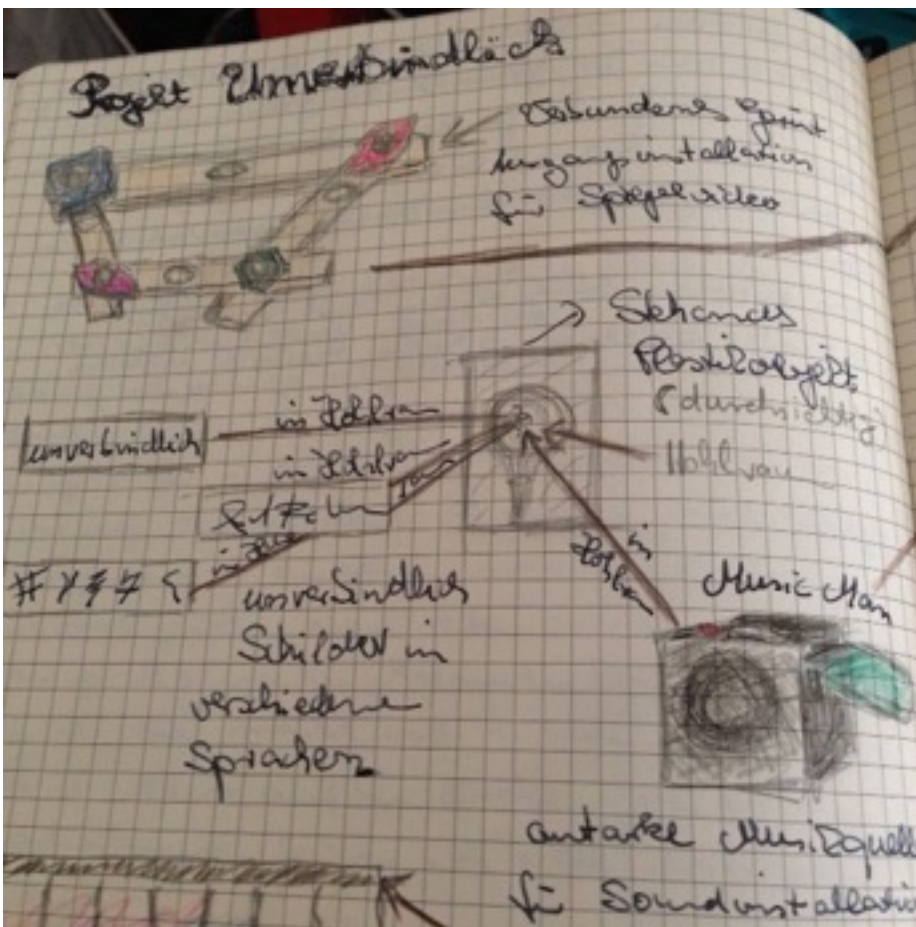 Projekt Unverbindlich
Verbundenes
installation
für Spiegelvideo
Plastikobjekt
(durchsichtig)
in Hohlraum
unverbindlich
in Hohlraum
Hohlraum
in
Hohlraum
unverbindlich
Music Man
Schilder in
verschiedene
Sprachen
autarke Musikquell
für Soundinstallation